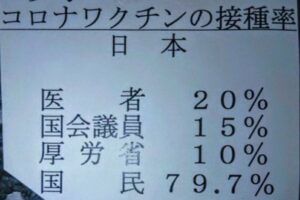 コロナワクチンの接種率
日本
医者 20%
国会議員 15%
厚労省 10%
国民 79.7%